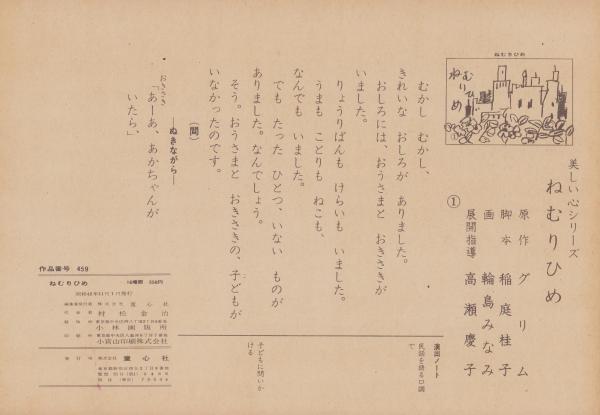 ねむりひめ
ねむりひめ
美しい心シリーズ
ねむりひめ
原作 グリム
脚本 稲庭桂子
画 輪島みなみ
展開指導 高瀬慶子
①
演出ノート
民話を語る口調で
子どもに問いかける
むかし むかし、
きれいな おしろが ありました。
おしろには、おうさまと おきさきが
いました。
りょうりばんも けらいも いました。
うまも ことりも ねこも、
なんでも いました。
でも たった ひとつ、いない ものが
ありました。なんでしょう。
そう。おうさまと おきさきの、子どもが
いなかったのです。
(間)
―ぬきながら―
おきさき
「あーあ、あかちゃんが
いたら」
作品番号 459
ねむりひめ
16場面
株式会社 童心社
村松金治
小林製版所
小宮山印刷株式会社
株式会社 童心社